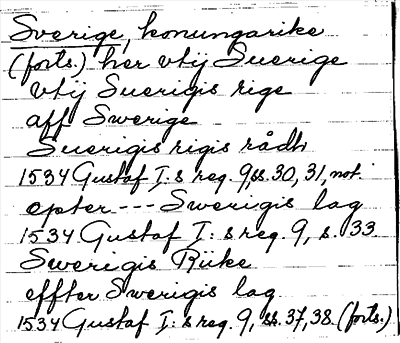 Sverige, konungarike
(forts.) her vtij Suerige
vtij Suerigis rige
aff Swerige
Suerigis rigis rådh
1534 Gustaf I:s reg. 9, ss. 30, 31, not.
epter --- Swerigis lag
1534 Gustaf I:s reg. 9, s. 33
Swerigis Riike
effter Swerigis lag
1534 Gustaf I:s reg. 9, ss. 37, 38 (forts.)